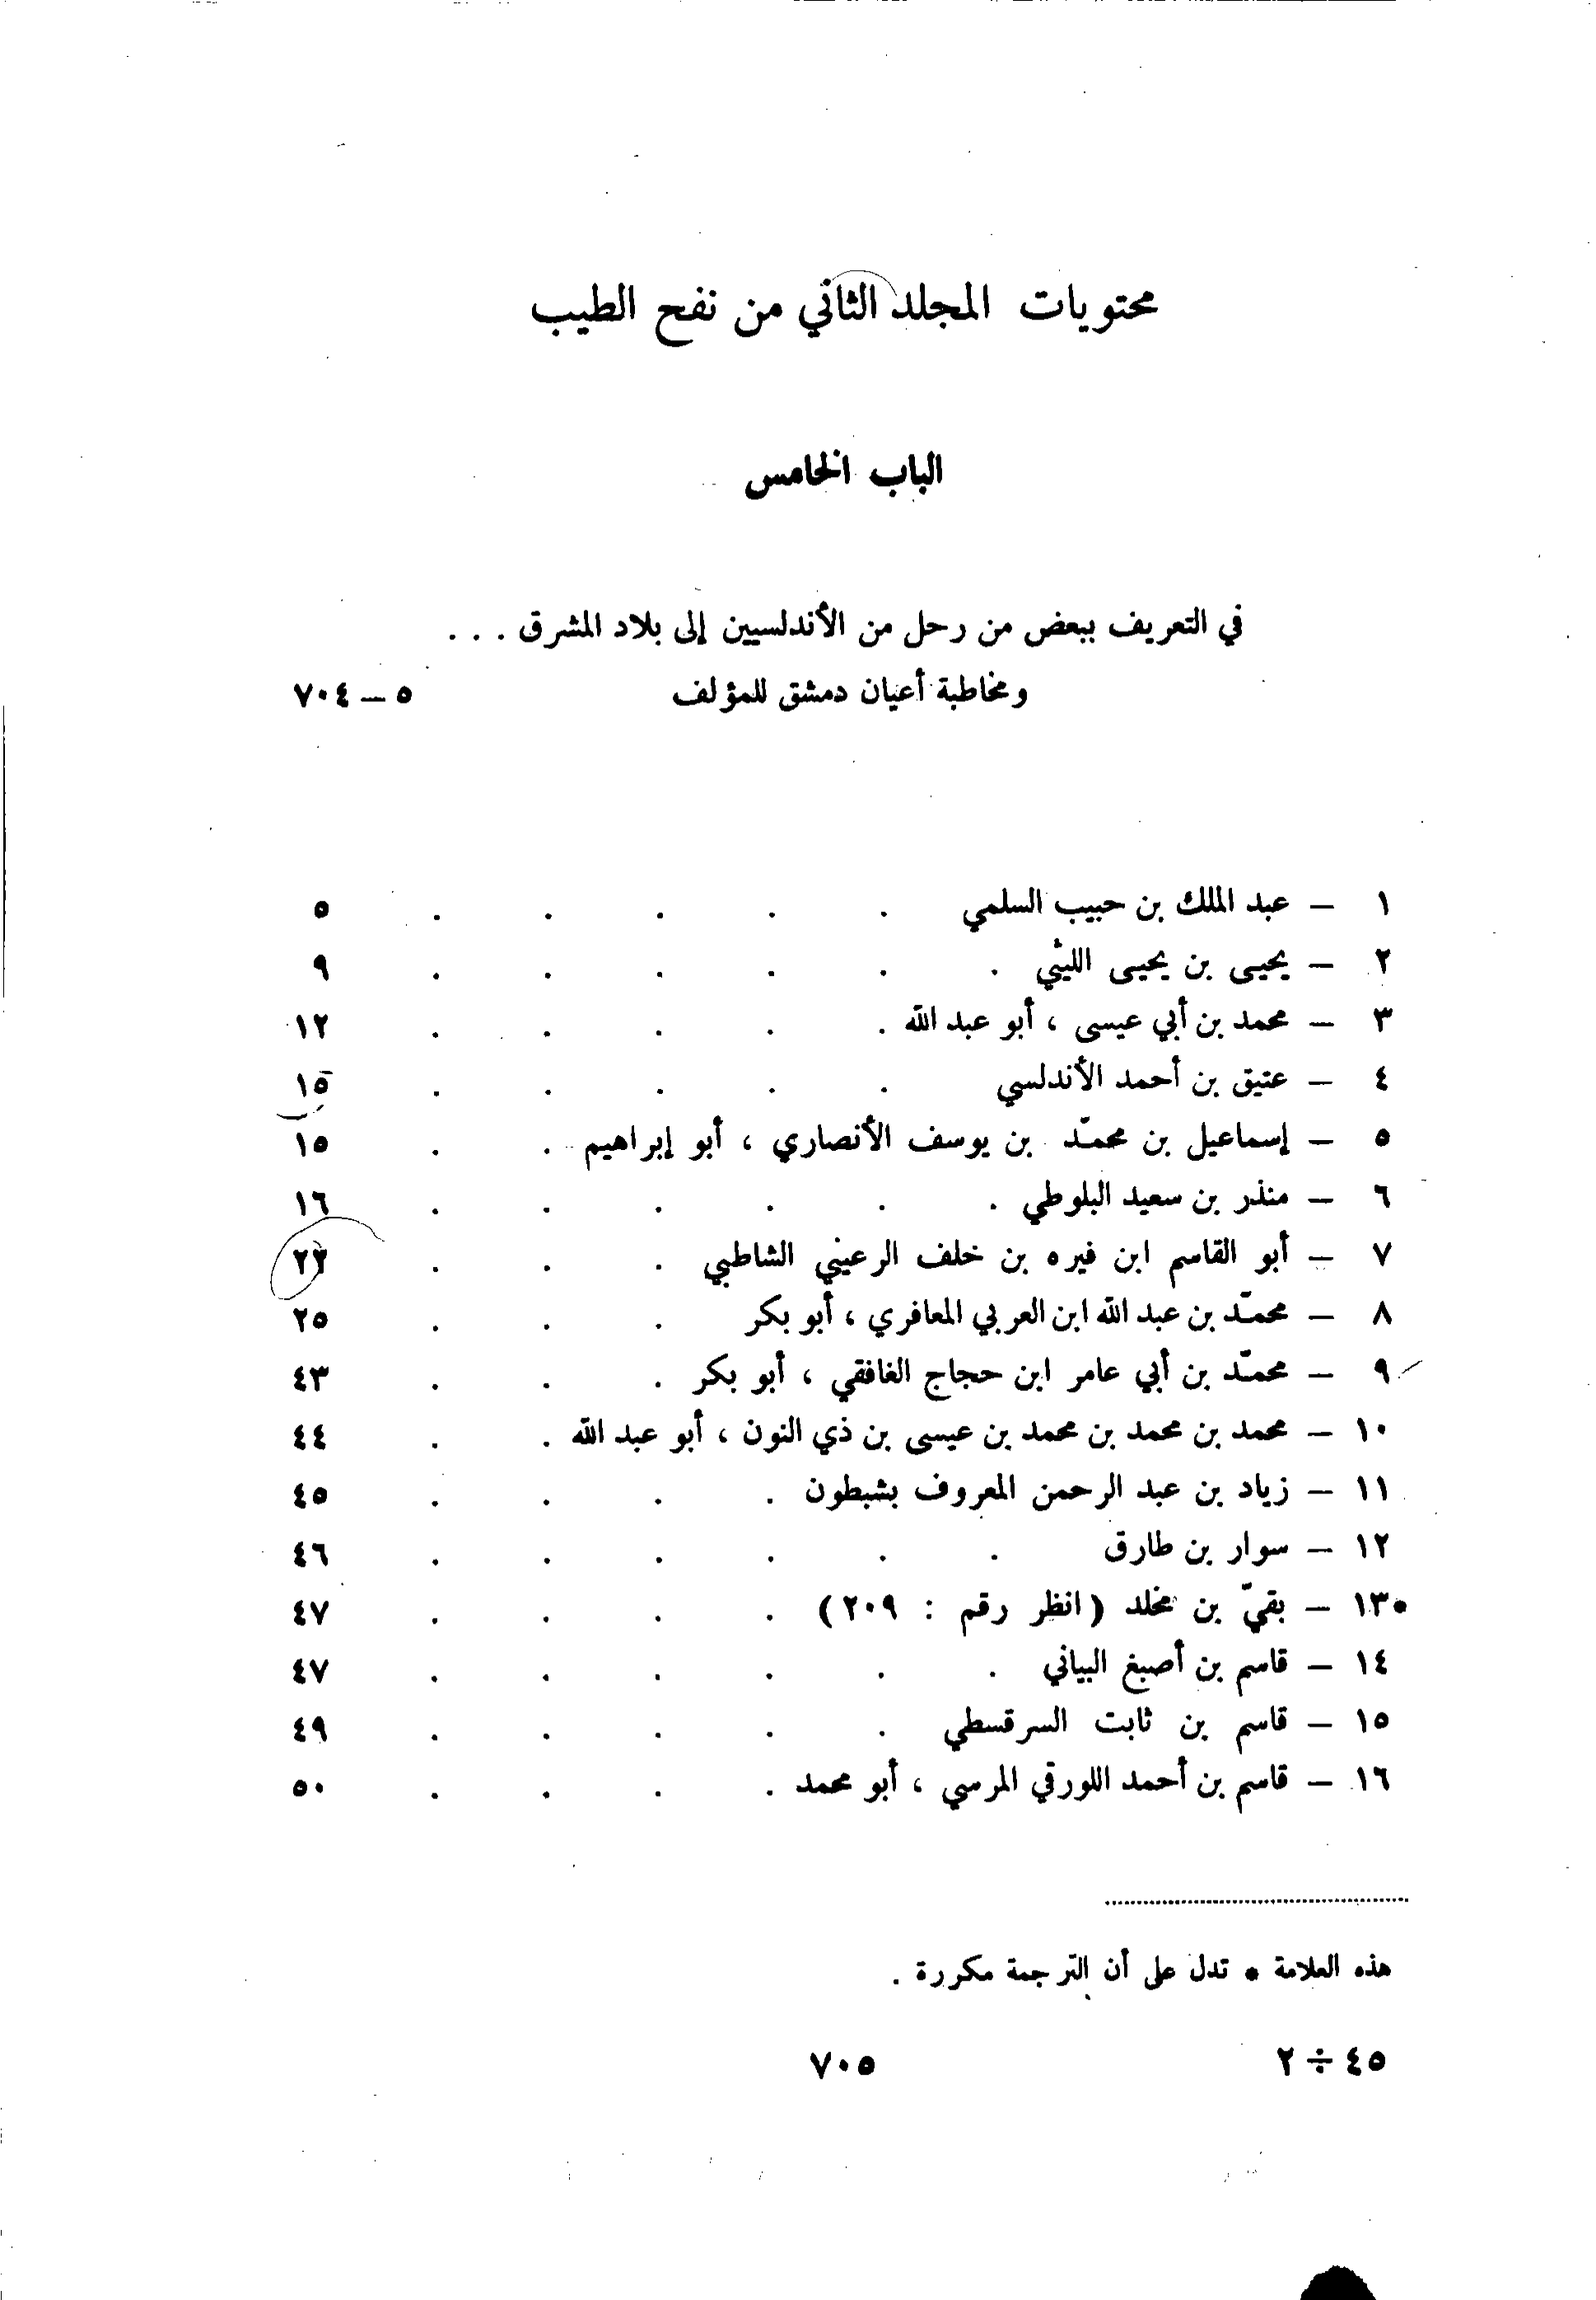 محتويات المجلد الثاني من نفح الطيب
الباب الخامس
في التعريف ببعض من رحل من الأندلسيين إلى بلاد المشرق . . .
ومخاطبة أعيان دمشق للمؤلف ٥ – ٧٠٤
١ – عبد الملك بن حبيب السلمي . . . . . ٥
٢ – يحيى بن يحيى الليثي . . . . . . ٩
٣ – محمد بن أبي عيسى ، أبو عبد الله . . . . . ١٢
٤ – عتيق بن أحمد الأندلسي . . . . . ١٥
٥ – إسماعيل بن محمّد بن يوسف الأنصاري ، أبو إبراهيم . . ١٥
٦ – منذر بن سعيد البلوطي . . . . . . ١٦
٧ – أبو القاسم ابن فيره بن خلف الرعيني الشاطبي . . . ٢٢
٨ – محمّد بن عبد الله ابن العربي المعافري ، أبو بكر . . . ٢٥
٩ – محمّد بن أبي عامر ابن حجاج الغافقي ، أبو بكر . . . ٤٣
١٠ – محمد بن محمد بن محمد بن عيسى بن ذي النون ، أبو عبد الله . . ٤٤
١١ – زياد بن عبد الرحمن المعروف بشبطون . . . . ٤٥
١٢ – سوار بن طارق . . . . . . ٤٦
*١٣ – بقيّ بن مخلد (انظر رقم : ٢٠٩) . . . . ٤٧
١٤ – قاسم بن أصبغ البياني . . . . . . ٤٧
١٥ – قاسم بن ثابت السرقسطي . . . . . ٤٩
١٦ – قاسم بن أحمد اللورقي المرسي ، أبو محمد . . . . ٥٠
هذه العلامة * تدل على أن الترجمة مكررة .
٤٥ ÷ ٢ ٧٠٥